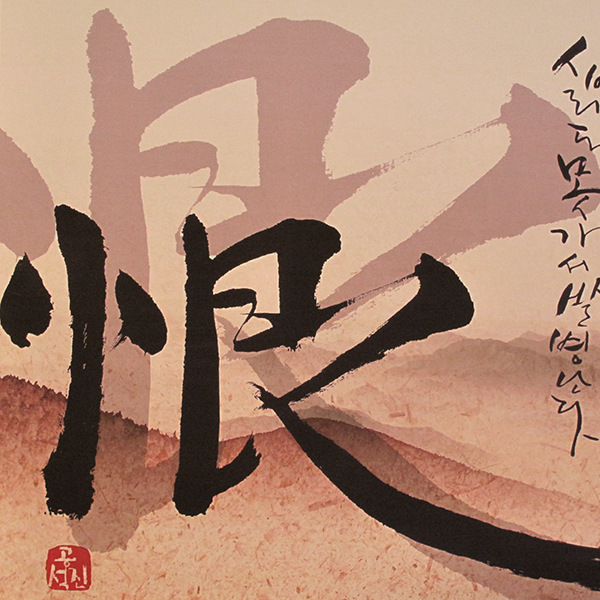 恨
십리도 못가서 발병난다
공석진